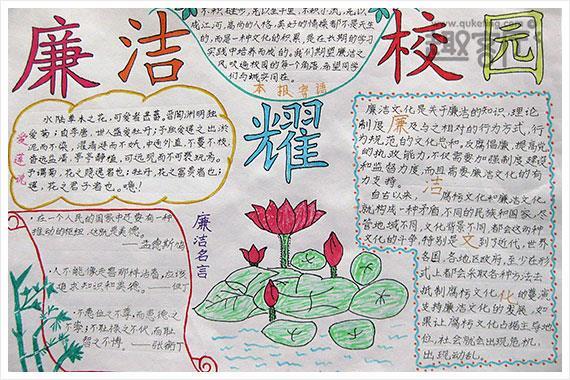 不积跬步,无以至千里,不积小流,无以
成江河,高尚的人格,美好的情操都不是天生
的,而是一种文化的积累,是在长期的学习
实践中培养而成的。我们期望廉洁之
风吹遍校园的每一个角落,希望同学
们与诚实同在。
本报寄语
廉洁
耀
校园
www.qukefing.com
爱莲说
水陆草木之花,可爱者甚蕃。晋陶渊明独
爱菊;自李唐,世人盛爱牡丹;予独爱莲之出淤
泥而不染,濯清涟而不妖,中通外直,不蔓不枝,
香远益清,亭亭静植,可远观而不可亵玩焉。
予谓菊,花之隐逸者也;牡丹,花之富贵者也;
莲,花之君子者也。噫!
廉洁名言
·在一个人民的国家中还要有一种
推动的枢纽,这就是美德。
——孟德斯鸠
人不能像走兽那样活着,应该
追求知识和美德。——但丁
·不患位之不尊,而患德之
不崇;不耻禄之不伙,而耻
智之不博。——张衡
廉洁文化是关于廉洁的知识、理论
制度及与之相对的行为方式,行
为规范的文化总和。反腐倡廉,提高党
的执政能力,不仅需要加强制度建设
和监督力度,而且需要廉洁文化的有
力支持。
自古以来, 腐朽文化和廉洁文化
就构成一种矛盾,不同的民族和国家,尽
管地域不同,文化背景不同,都会这两种
文化的斗争,特别是到了近代,世界
各国,各地区政府,至少在形
式上都会采取各种办法去
抵制腐朽文化的蔓延
支持廉洁文化的发展,如
果让腐朽文化占据主导地
位,社会就会出现危机,
出现动乱。
廉
洁
文
化